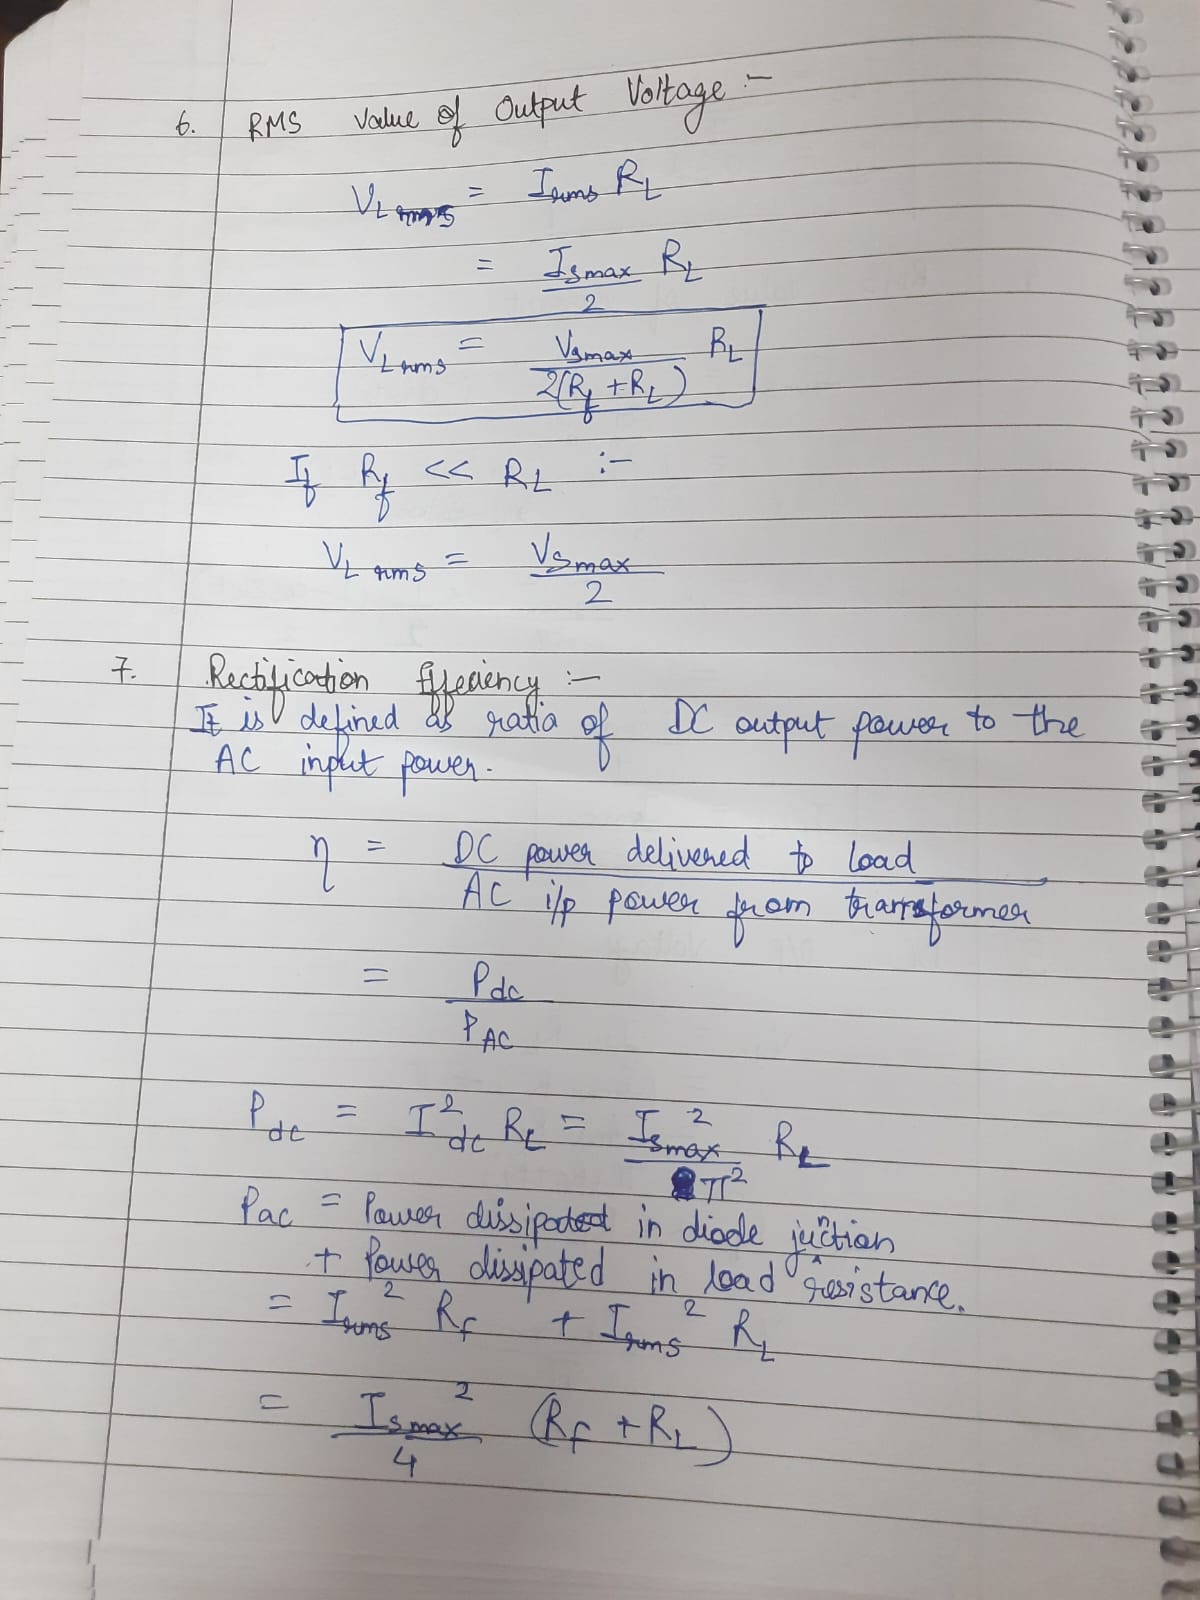 6. RMS Value of Output Voltage :-
V_L rms = I_rms R_L
= I_smax/2 R_L
V_L rms = V_smax/2(R_f + R_L) R_L
If R_f << R_L :-
V_L rms = V_smax/2
7. Rectification Effeciency :-
It is defined as ratio of DC output power to the
AC input power.
η = DC power delivered to load
AC i/p power from transformer
= P_dc
P_AC
P_dc = I²_dc R_L = I_smax²/π² R_L
Pac = Power dissipated in diode junction
+ Power dissipated in load resistance.
= I_rms² R_f + I_rms² R_L
= I_smax²/4 (R_f + R_L)